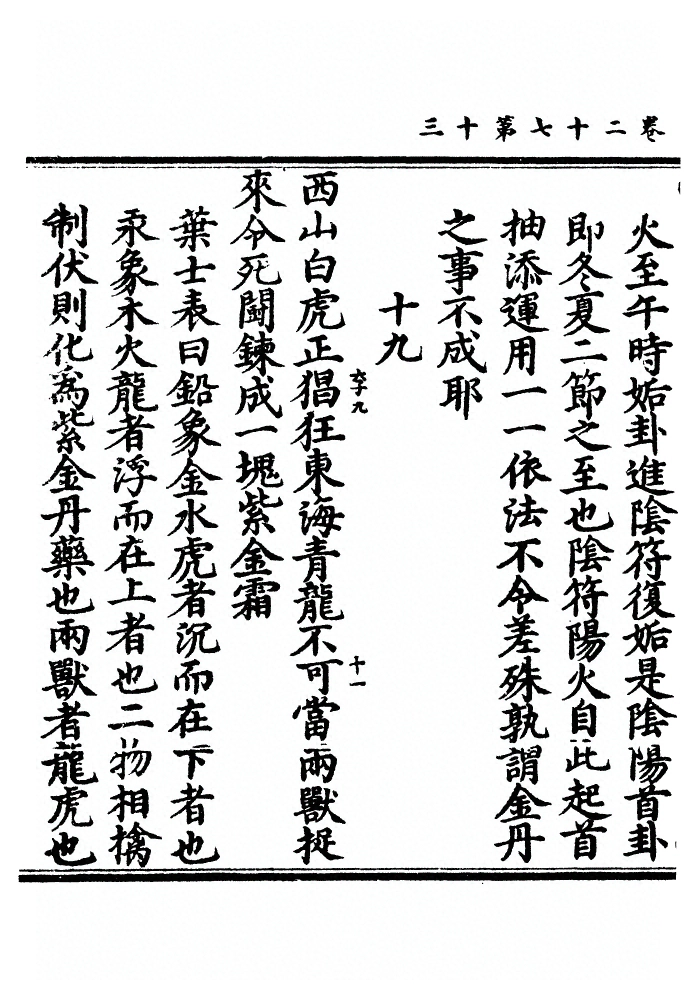 卷二十七第十三
火至午時姤卦進陰符復姤是陰陽首卦
即冬夏二節之至也陰符陽火自此起首
抽添運用一一依法不令差殊孰謂金丹
之事不成耶
十九
西山白虎正猖狂東海青龍不可當兩獸捉
六子九
十一
來令死鬪鍊成一塊紫金霜
葉士表曰鉛象金水虎者沉而在下者也
汞象木火龍者浮而在上者也二物相擒
制伏則化為紫金丹藥也兩獸者龍虎也